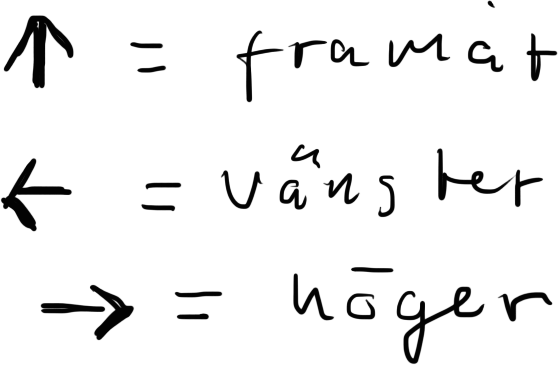 ↑ = framåt
← = vänster
→ = höger